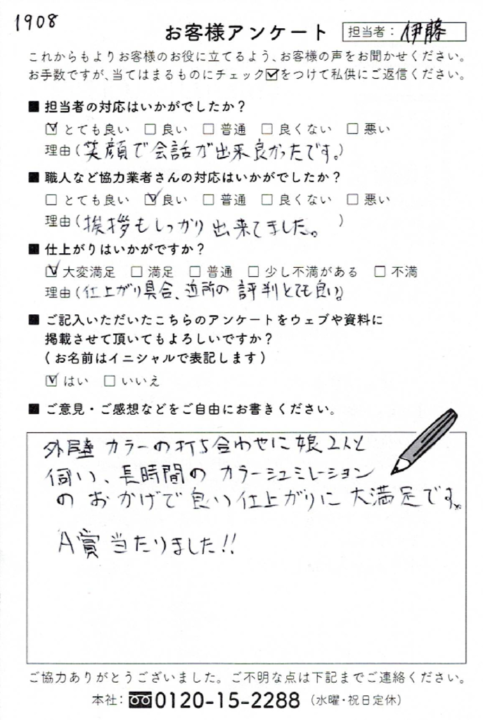 1908
お客様アンケート 担当者： 伊藤
これからもよりお客様のお役に立てるよう、お客様の声をお聞かせください。
お手数ですが、当てはまるものにチェック☑をつけて私供にご返信ください。
■ 担当者の対応はいかがでしたか？
☑とても良い □良い □普通 □良くない □悪い
理由（笑顔で会話が出来良かったです。）
■ 職人など協力業者さんの対応はいかがでしたか？
□とても良い ☑良い □普通 □良くない □悪い
理由（挨拶もしっかり出来てました。）
■ 仕上がりはいかがですか？
☑大変満足 □満足 □普通 □少し不満がある □不満
理由（仕上がり具合、近所の評判とても良い）
■ ご記入いただいたこちらのアンケートをウェブや資料に
掲載させて頂いてもよろしいですか？
（お名前はイニシャルで表記します）
☑はい □いいえ
■ ご意見・ご感想などをご自由にお書きください。
外壁カラーの打ち合わせに娘2人と
伺い、長時間のカラーシュミレーション
のおかげで良い仕上がりに大満足です。
A賞当たりました!!
ご協力ありがとうございました。ご不明な点は下記までご連絡ください。
本社：0120-15-2288（水曜・祝日定休）